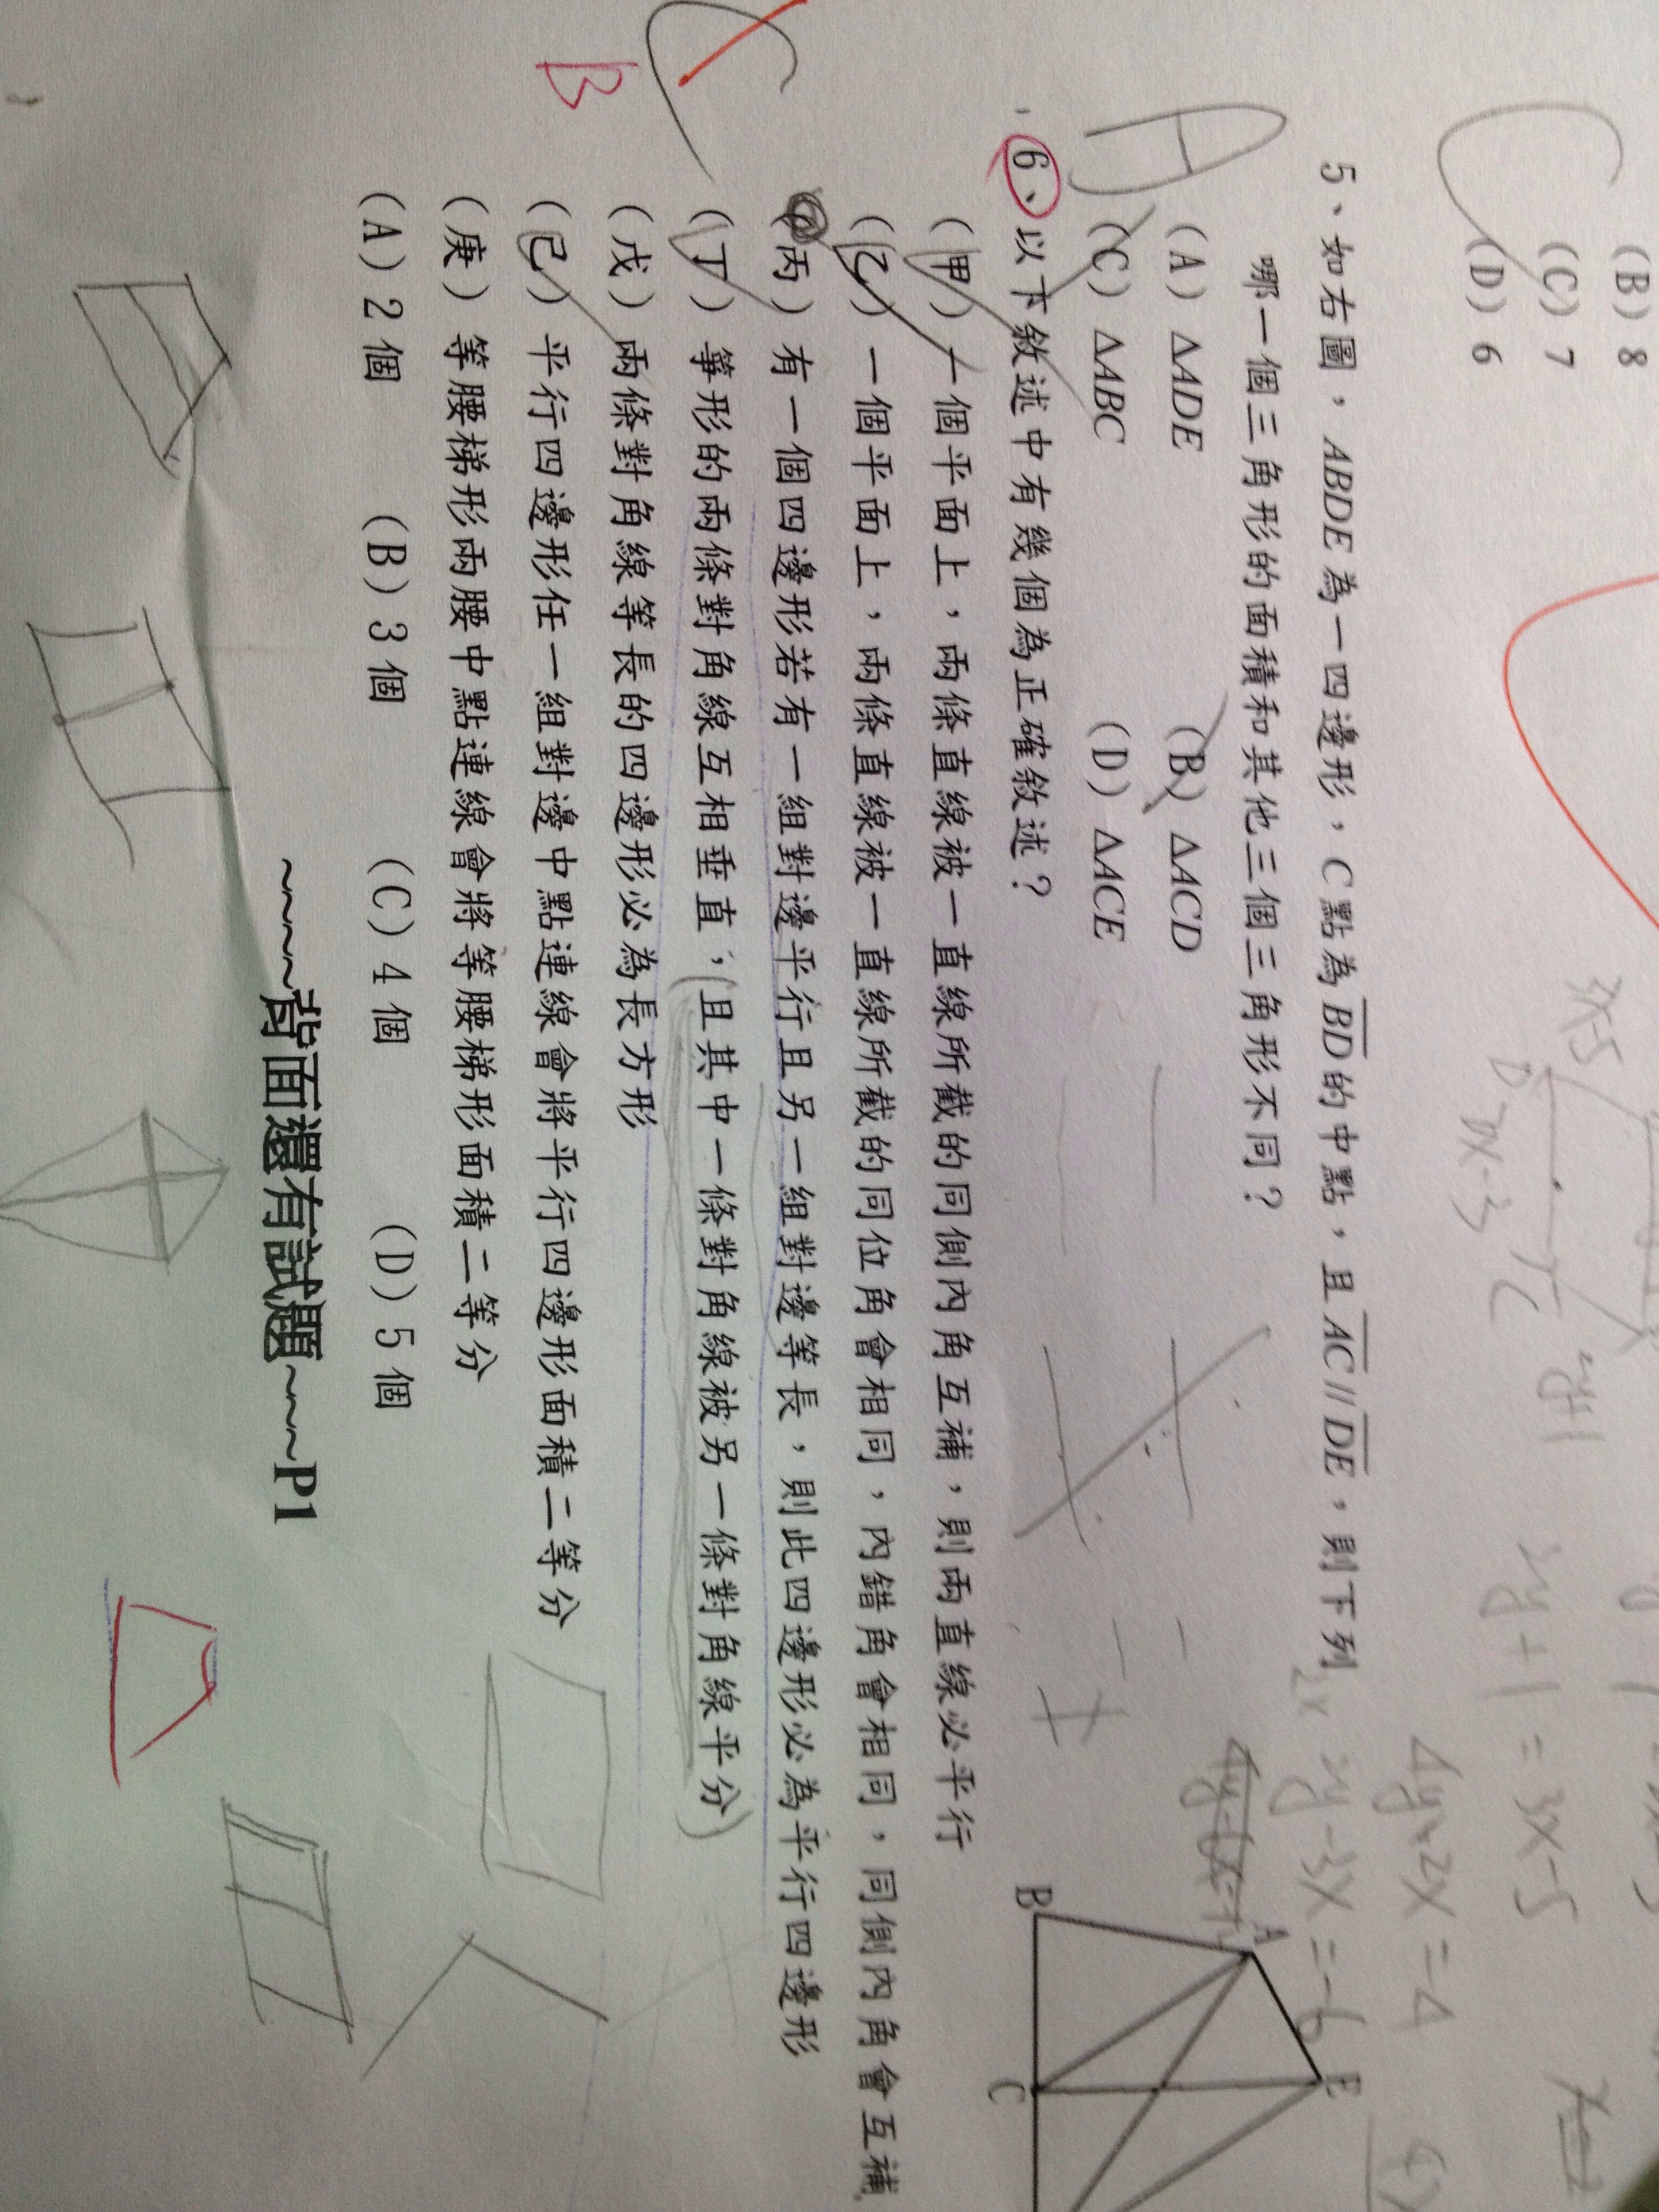 (B) 8
(C) 7
(D) 6
C
3x-5
5、如右圖，ABDE為一四邊形，C點為BD的中點，且AC//DE，則下列
哪一個三角形的面積和其他三個三角形不同？
A
(A) ΔADE (B) ΔACD
(C) ΔABC (D) ΔACE
A
E
B
C
2y+1=3x-5
4y-2x=-4
2y-3x=-6
6、以下敘述中有幾個為正確敘述？
(甲) 一個平面上，兩條直線被一直線所截的同側內角互補，則兩直線必平行
(乙) 一個平面上，兩條直線被一直線所截的同位角會相同，內錯角會相同，同側內角會互補
(丙) 有一個四邊形若有一組對邊平行且另一組對邊等長，則此四邊形必為平行四邊形
(丁) 箏形的兩條對角線互相垂直；(且其中一條對角線被另一條對角線平分)
(戊) 兩條對角線等長的四邊形必為長方形
(己) 平行四邊形任一組對邊中點連線會將平行四邊形面積二等分
(庚) 等腰梯形兩腰中點連線會將等腰梯形面積二等分
C
B
(A) 2個 (B) 3個 (C) 4個 (D) 5個
~~~~背面還有試題~~~~P1